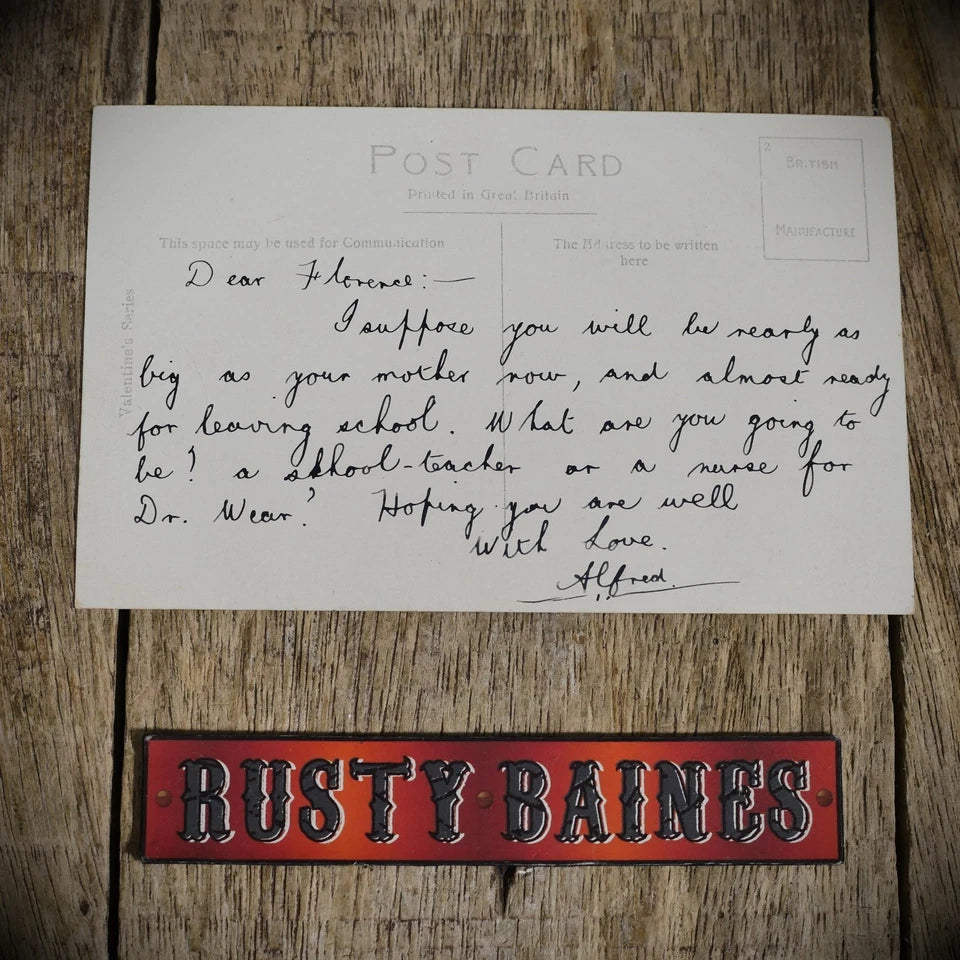 POST CARD
Printed in Great Britain
2
BRITISH
MANUFACTURE
This space may be used for Communication
The Address to be written
here
Valentine's Series
Dear Florence:—
I suppose you will be nearly as
big as your mother now, and almost ready
for leaving school. What are you going to
be? a skhool-teacher or a nurse for
Dr. Wear? Hoping you are well
With Love.
Alfred.
RUSTY BAINES